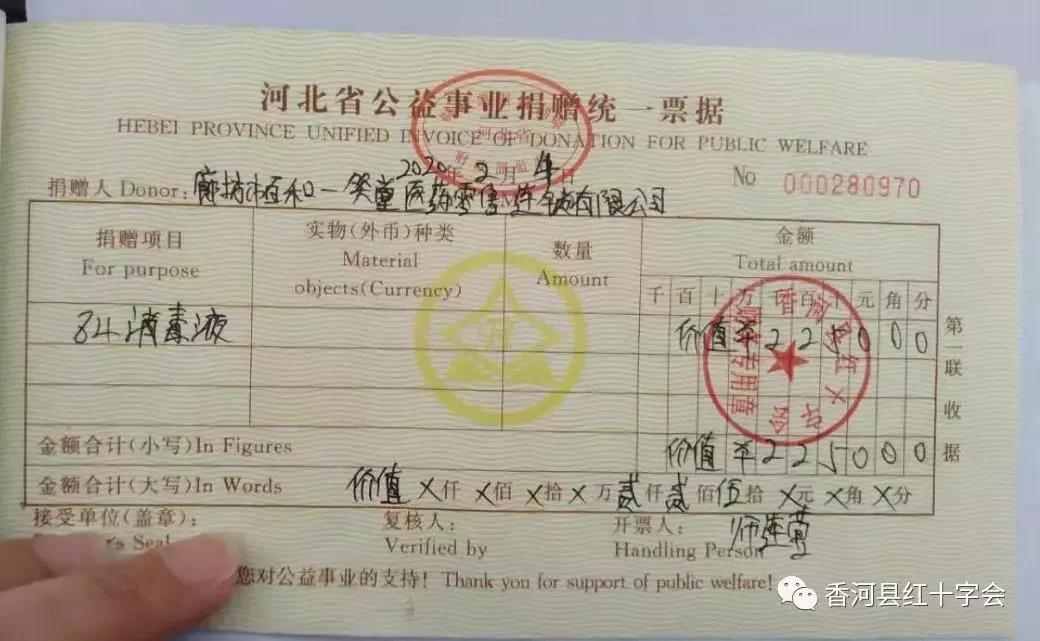 河北省公益事业捐赠统一票据
HEBEI PROVINCE UNIFIED INVOICE OF DONATION FOR PUBLIC WELFARE
2020年2月4日
No 000280970
捐赠人 Donor: 廊坊植和一笑堂医药零售连锁有限公司
捐赠项目 实物(外币)种类 数量 金额
For purpose Material objects(Currency) Amount Total amount
千 百 十 万 千 百 十 元 角 分
84消毒液 价值 ¥ 2 2 5 0 0 0
金额合计(小写)In Figures 价值 ¥ 2 2 5 0 0 0
金额合计(大写)In Words 价值 X仟 X佰 X拾 X万 贰仟 贰佰 伍拾 X元 X角 X分
第一联 收据
接受单位(盖章): 复核人: 开票人:
Seal Verified by Handling Person
您对公益事业的支持! Thank you for support of public welfare!
香河县红十字会
财务专用章
香河县红十字会